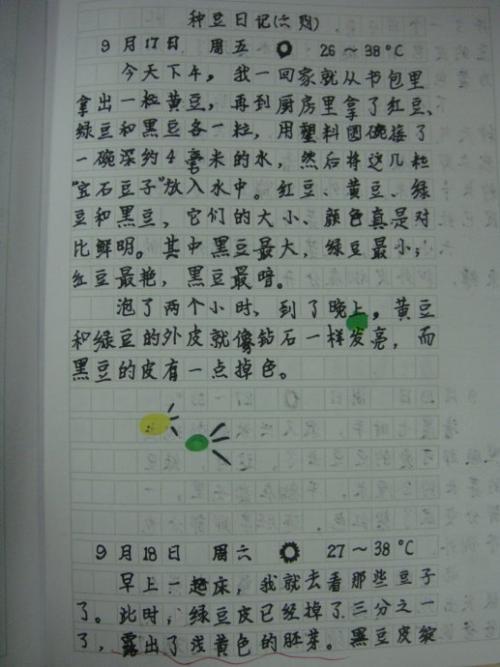 种豆日记(六则)
9月17日 周五 26～38℃
今天下午，我一回家就从书包里
拿出一粒黄豆，再到厨房里拿了红豆、
绿豆和黑豆各一粒，用塑料圆碗接了
一碗深约4毫米的水，然后将这几粒
“宝石豆子”放入水中。红豆、黄豆、绿
豆和黑豆，它们的大小、颜色真是对
比鲜明。其中黑豆最大，绿豆最小；
红豆最艳，黑豆最暗。
泡了两个小时，到了晚上，黄豆
和绿豆的外皮就像钻石一样发亮，而
黑豆的皮有一点掉色。
9月18日 周六 27～38℃
早上一起床，我就去看那些豆子
了。此时，绿豆皮已经掉了三分之一
了，露出了浅黄色的胚芽。黑豆皮绽